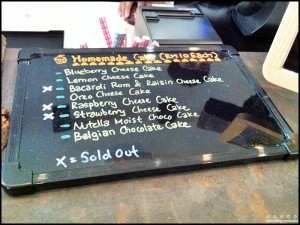 Homemade Cake (RM10 Each)
- Blueberry Cheese Cake
- Lemon Cheese Cake
x - Bacardi Rom & Raisin Cheese Cake
- Oreo Cheese Cake
x - Raspberry Cheese Cake
x - Strawberry Cheese Cake
- Nutella Moist Choco Cake
- Belgian Chocolate Cake
X = Sold Out